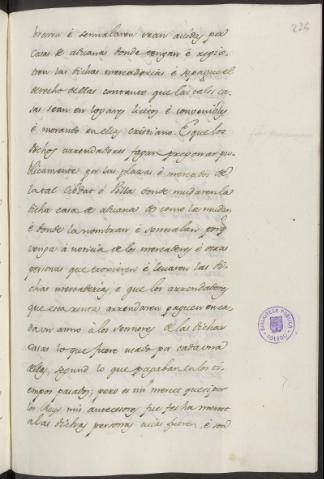 236
braren é sennalaren vean avidos por
casas de aduanas donde vengan é regis-
tren las dichas mercadorias é se pague el
derecho dellas con tanto que las tales ca-
sas sean en logares lícitos é convenibles
é morando en ellas cristiano. E que los
dichos arrendadores fagan pregonar pu-
blicamente por las plazas é mercados de
la tal Cibdat ó Villa donde mudaren la
dicha casa de aduana de como la mudan
é donde la nombran é sennalan porq.
venga á noticia de los mercaderes é otras
personas que troxieren é levaren las di-
chas mercadorias; é que los arrendadores
que esta renta arrendaren paguen en ca-
da un anno á los sennores de las dichas
casas lo que fuere usado por cada una
dellas, segund lo que pagaban en los ti-
empos pasados; pero es mi merced que si por
los Reyes mis antecesores fue fecha merced
á las dichas personas cuias fueren, é son
BIBLIOTECA PUBLICA
TOLEDO